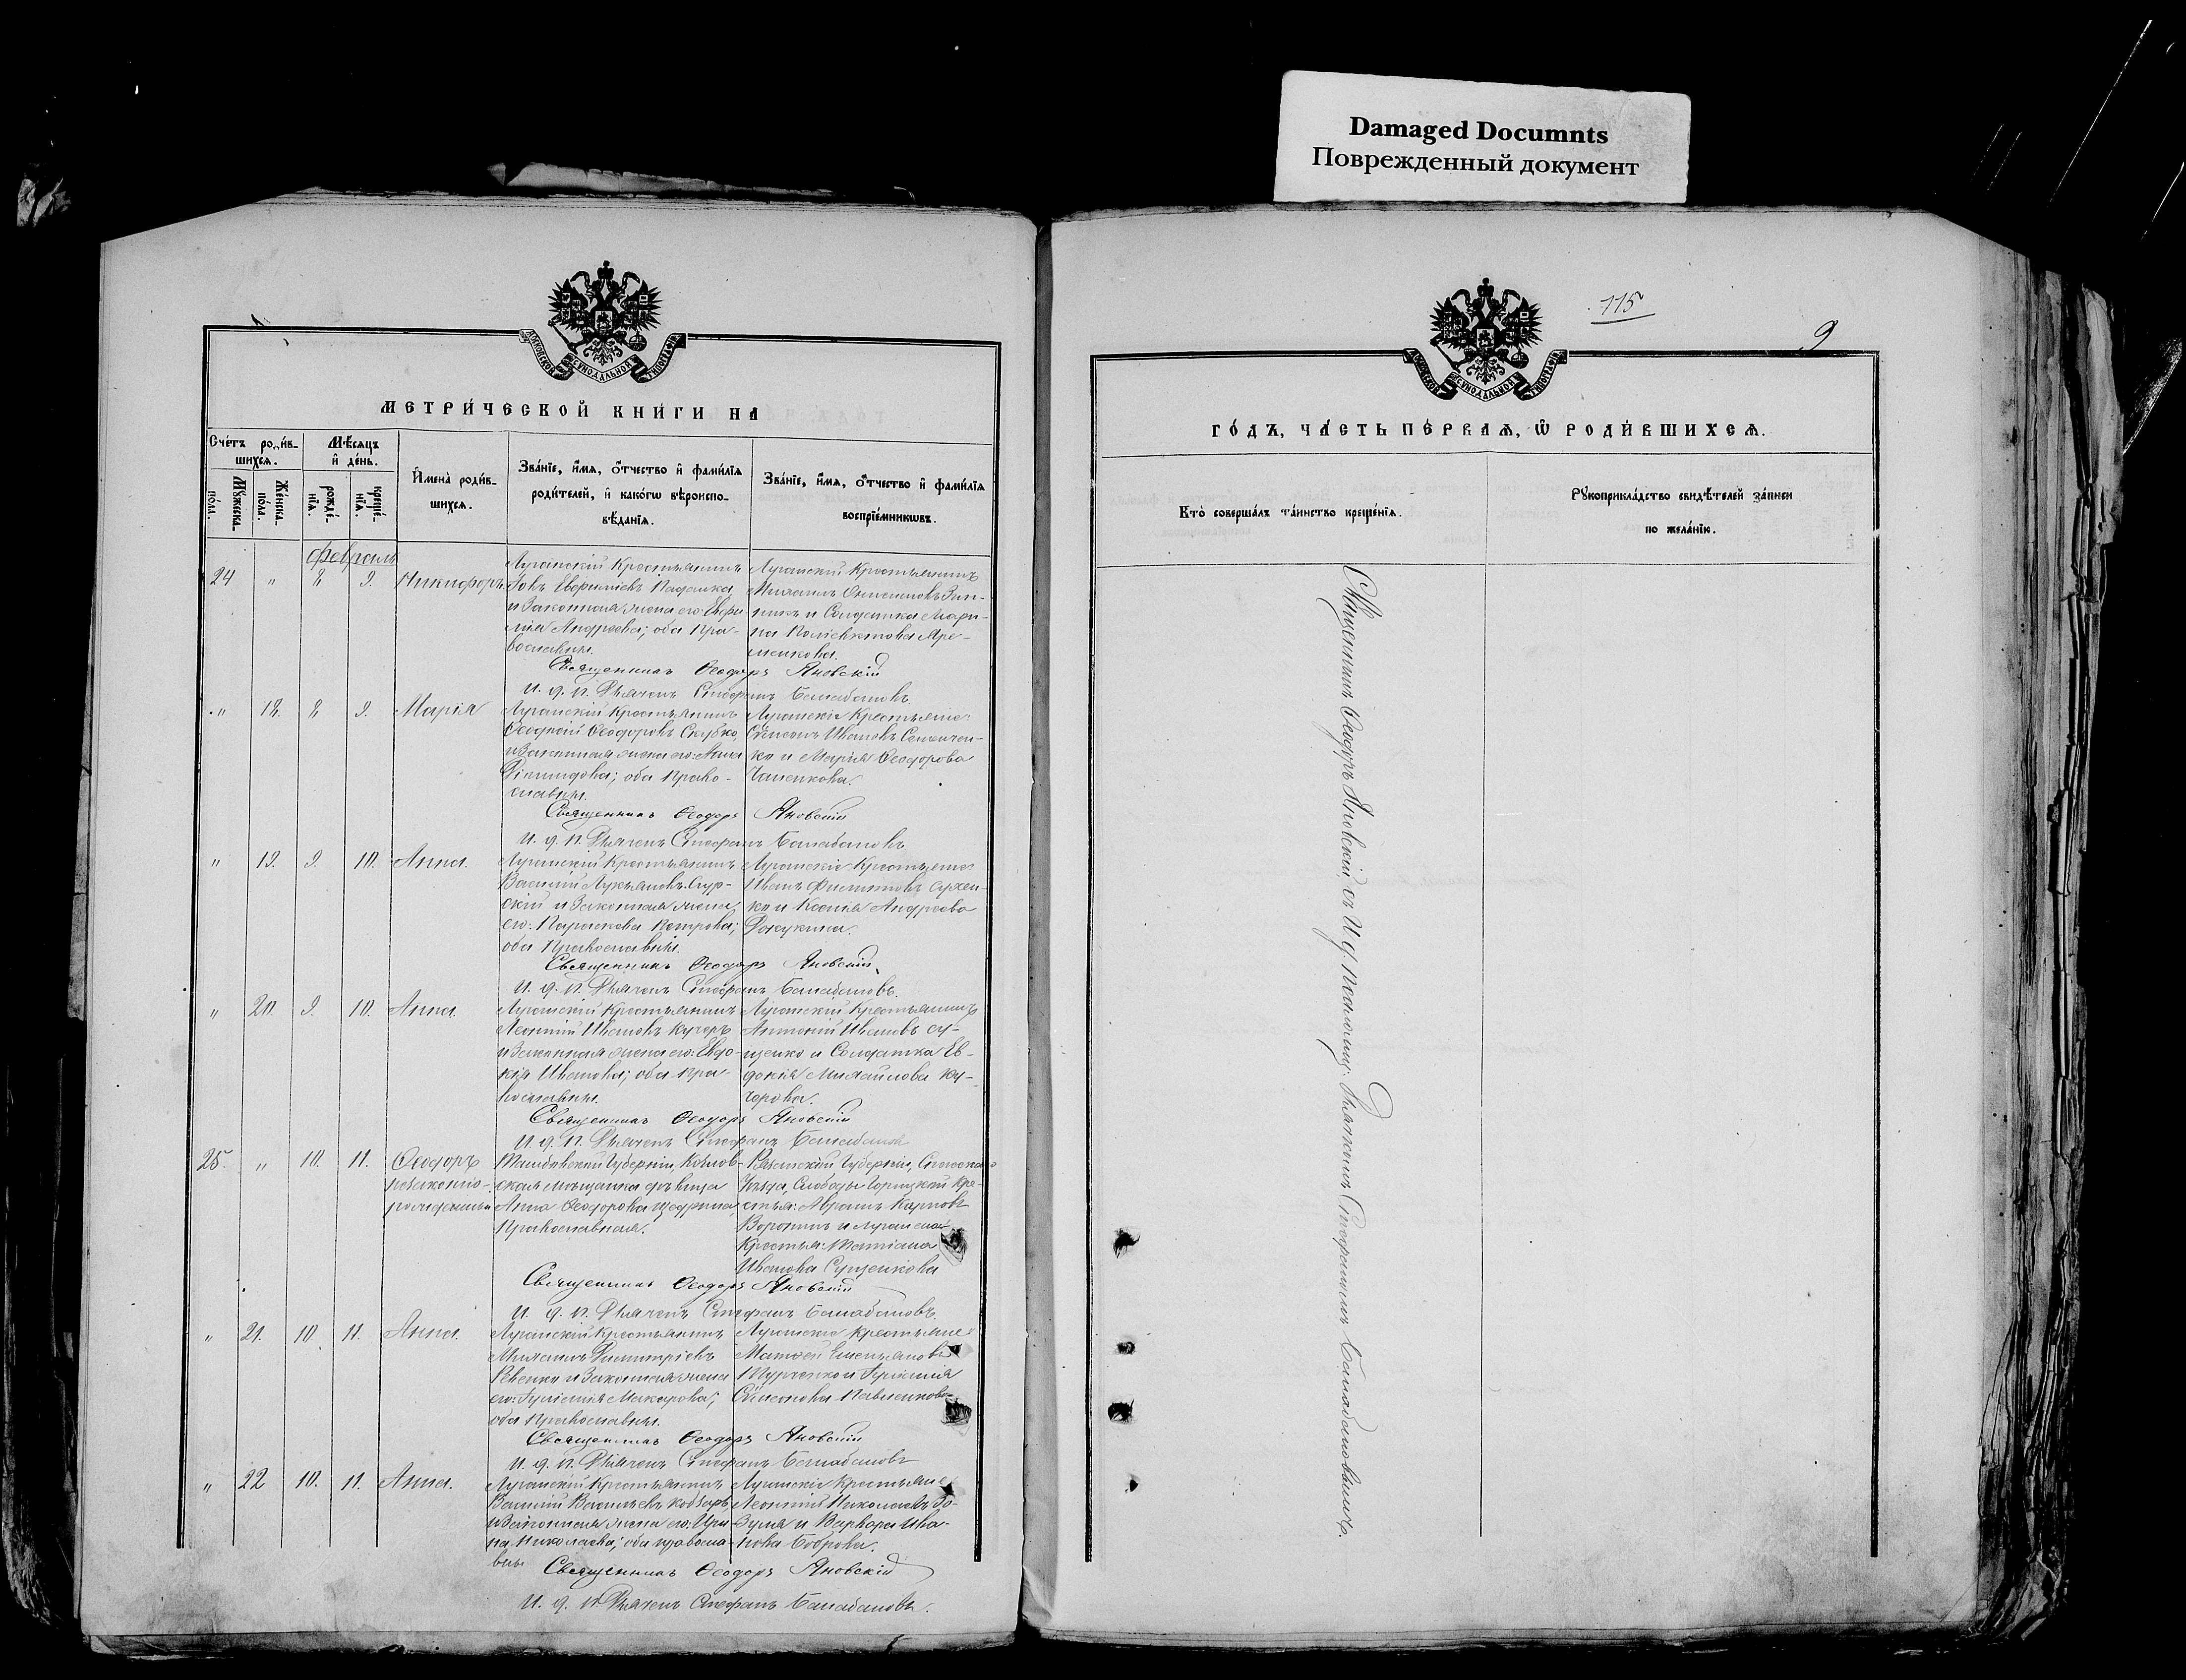 Damaged Documnts
Поврежденный документ
МОСКОВСКОЙ СѴНОДАЛЬНОЙ ТИПОГРАФІИ
МЕТРИ́ЧЕСКОЙ КНИ́ГИ НА
Сче́тъ роди́в-
шихсѧ.
Мꙋ́жеска-
по́ла.
Же́нска-
по́ла.
Мѣ́сѧцъ
и҆ де́нь.
рожде́-
нїѧ.
креще́-
нїѧ.
И҆мена̀ роди́в-
шихсѧ.
Зва́нїе, и҆́мѧ, ѻ҆́тчество и҆ фами́лїѧ
роди́телей, и҆ како́гѡ вѣроиспо-
вѣ́данїѧ.
Зва́нїе, и҆́мѧ, ѻ҆́тчество и҆ фами́лїѧ
воспрїе́мникѡвъ.
Февраль
24 " 8 9. Никифоръ
Луганскій Крестьянинъ
Іовъ Евфиміевъ
и Законная жена его: Евфи-
мія Андреева; оба Пра-
вославны.
Луганскій Крестьянинъ
Михаилъ
и Солдатка Мари-
на
Священникъ Ѳеодоръ Яновскій
И. д. п. Дьячекъ Стефанъ Балабановъ.
" 18. 8 9. Марія
Луганскій Крестьянинъ
Ѳеодоровъ Скубко,
и Законная жена его: Анна
оба Право-
славны.
Луганскіе Крестьяне:
Сѵмеонъ Ивановъ Семенчен-
ко и Марія Ѳеодорова
Священникъ Ѳеодоръ Яновскій
И. д. п. Дьячекъ Стефанъ Балабановъ
" 19. 9. 10. Анна.
Луганскій Крестьянинъ
Василій Лукьяновъ
и Законная жена
его: Параскева Петрова;
оба Православны.
Луганскіе Крестьяне:
Иванъ Филипповъ Сухен-
ко и Ксенія Андреева
Священникъ Ѳеодоръ Яновскій
И. д. п. Дьячекъ Стефанъ Балабановъ.
" 20. 9. 10. Анна.
Луганскій Крестьянинъ
Леонтій Ивановъ Кучеръ
и Законная жена его: Евдо-
кія Иванова; оба Пра-
вославны.
Луганскій Крестьянинъ
Антоній Ивановъ Су-
щенко и Солдатка Ев-
докія Михайлова Ку-
черова.
Священникъ Ѳеодоръ Яновскій
И. д. п. Дьячекъ Стефанъ Балабановъ
25. " 10. 11. Ѳеодоръ
незаконно-
рожденный
Тамбовской Губерніи, Козлов-
ская мѣщанка дѣвица
Анна Ѳеодорова Щедрина,
Православная.
Рязанской Губерніи,
Уѣзда, Слободы Кре-
стья: Абрамъ Карповъ
Воронинъ и Луганская
Крестья: Татіана
Иванова Сущенкова
Священникъ Ѳеодоръ Яновскій
И. д. п. Дьячекъ Стефанъ Балабановъ.
" 21. 10. 11. Анна.
Луганскій Крестьянинъ
Михаилъ Димитріевъ
Ревенко и Законная жена
его: Іуліанія Макарова;
оба Православны.
Луганскіе Крестьяне:
Матѳей Емельяновъ
и Іуліанія
Сѵмеонова Павленкова
Священникъ Ѳеодоръ Яновскій
И. д. п. Дьячекъ Стефанъ Балабановъ
" 22 10. 11. Анна.
Луганскій Крестьянинъ
Василій Васильевъ Кобзарь
и Законная жена его: Ири-
на Николаева; оба правосла-
вны
Луганскіе Крестьяне:
Леонтій Николаевъ
и Варвара Ива-
нова Боброва.
Священникъ Ѳеодоръ Яновскій
И. д. п. Дьячекъ Стефанъ Балабановъ.
115
9
МОСКОВСКОЙ СѴНОДАЛЬНОЙ ТИПОГРАФІИ
ГО́ДЪ, ЧА́СТЬ ПЕ́РВАѦ, Ѡ҆ РОДИ́ВШИХСѦ.
Кто̀ соверша́лъ та́инство креще́нїѧ.
Рꙋкоприкла́дство свидѣ́телей за́писи
по жела́нїю.
Священникъ Ѳеодоръ Яновскій съ И. д. Псаломщ: Дьячкомъ Стефаномъ Балабановымъ.